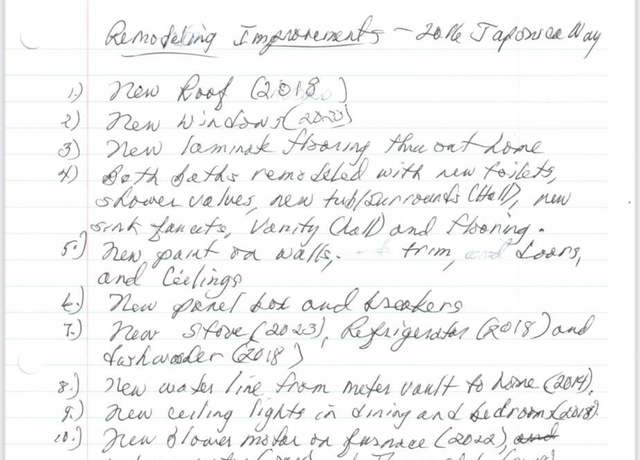 Remodeling Improvements - Japonica Way
1.) New Roof (2018)
2) New Windows (2020)
3) New laminate flooring thru out home
4) Both baths remodeled with new toilets,
shower valves, new tub/surrounds (Hall), new
sink faucets, Vanity (hall) and flooring.
5.) New paint on walls, trim, and doors,
and Ceilings
6.) New panel box and breakers
7.) New Stove (2023), Refrigerator (2018) and
dishwasher (2018)
8.) New water line from meter vault to home (2014).
9.) New ceiling lights in dining and bedroom (2018)
10.) New blower motor on furnace (2022), and